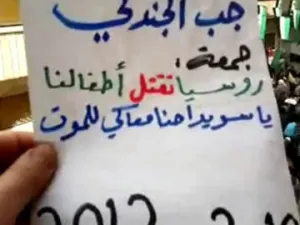 جب الجندلي
جمعة:
روسيا تقتل أطفالنا
يا سويدا حنا معاكي للموت
2012